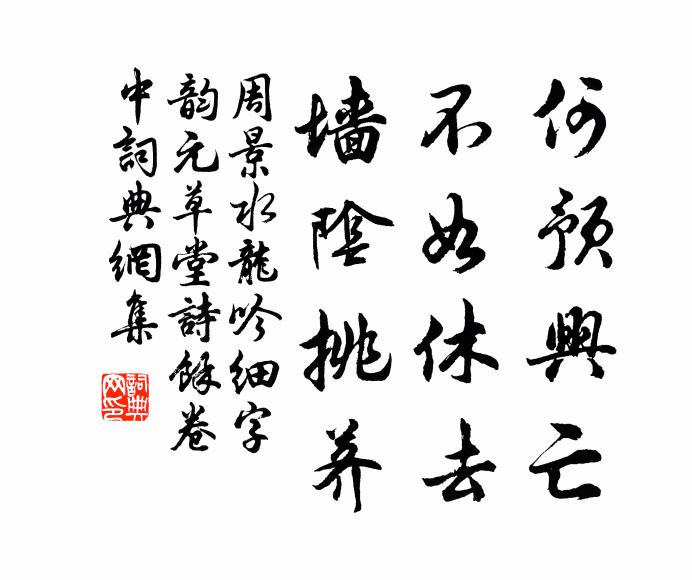 何預興亡
不如休去
墙陰挑荠
周景水龍吟細字
韵元草堂詩餘卷
中詞典網集
詞典
网印